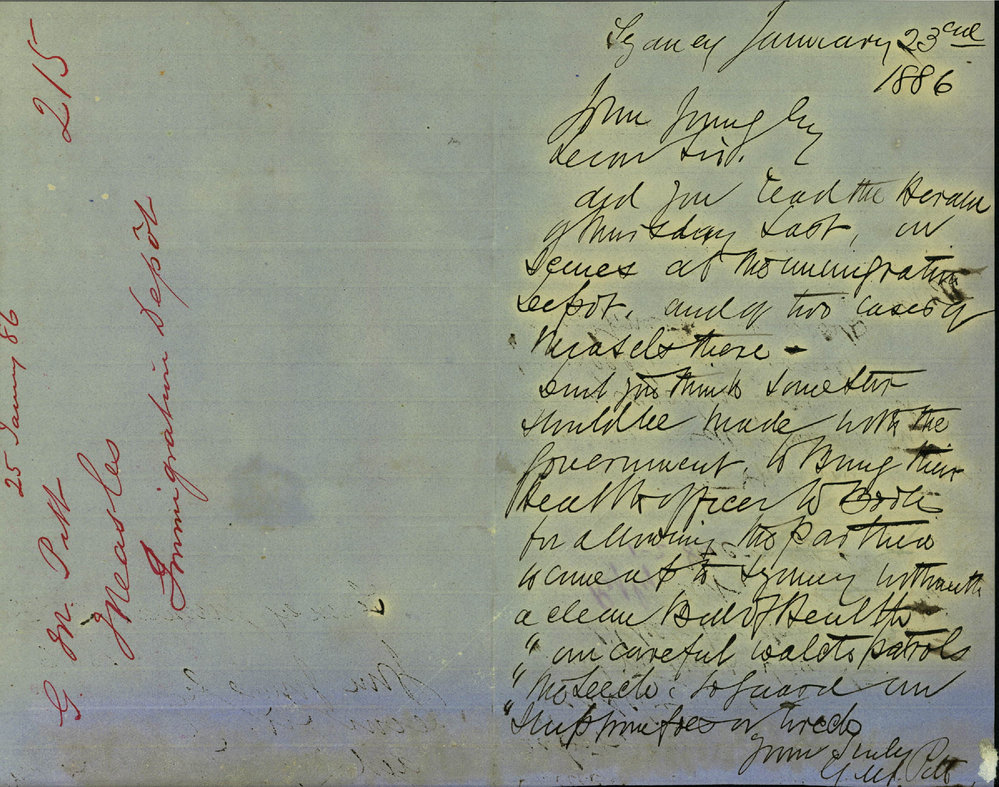 215
25 Jany 86
G. M. Pitt
Measles
Immigration Depôt
Sydney January 23rd
1886
John Young Esq
Dear Sir.
did you read the Herald
of Thursday last, on
Scenes at the immigration
Depôt, and of two cases of
Measels there -
dont you think some stir
should be made with the
Government, to Bring their
Health officer to Book
for allowing the parties
to come up to Sydney without
a clean Bill of Health
" our careful watch patrols
" the Deck: to guard our
" Ship from foes or wreck
Yours Truly
G. M. Pitt